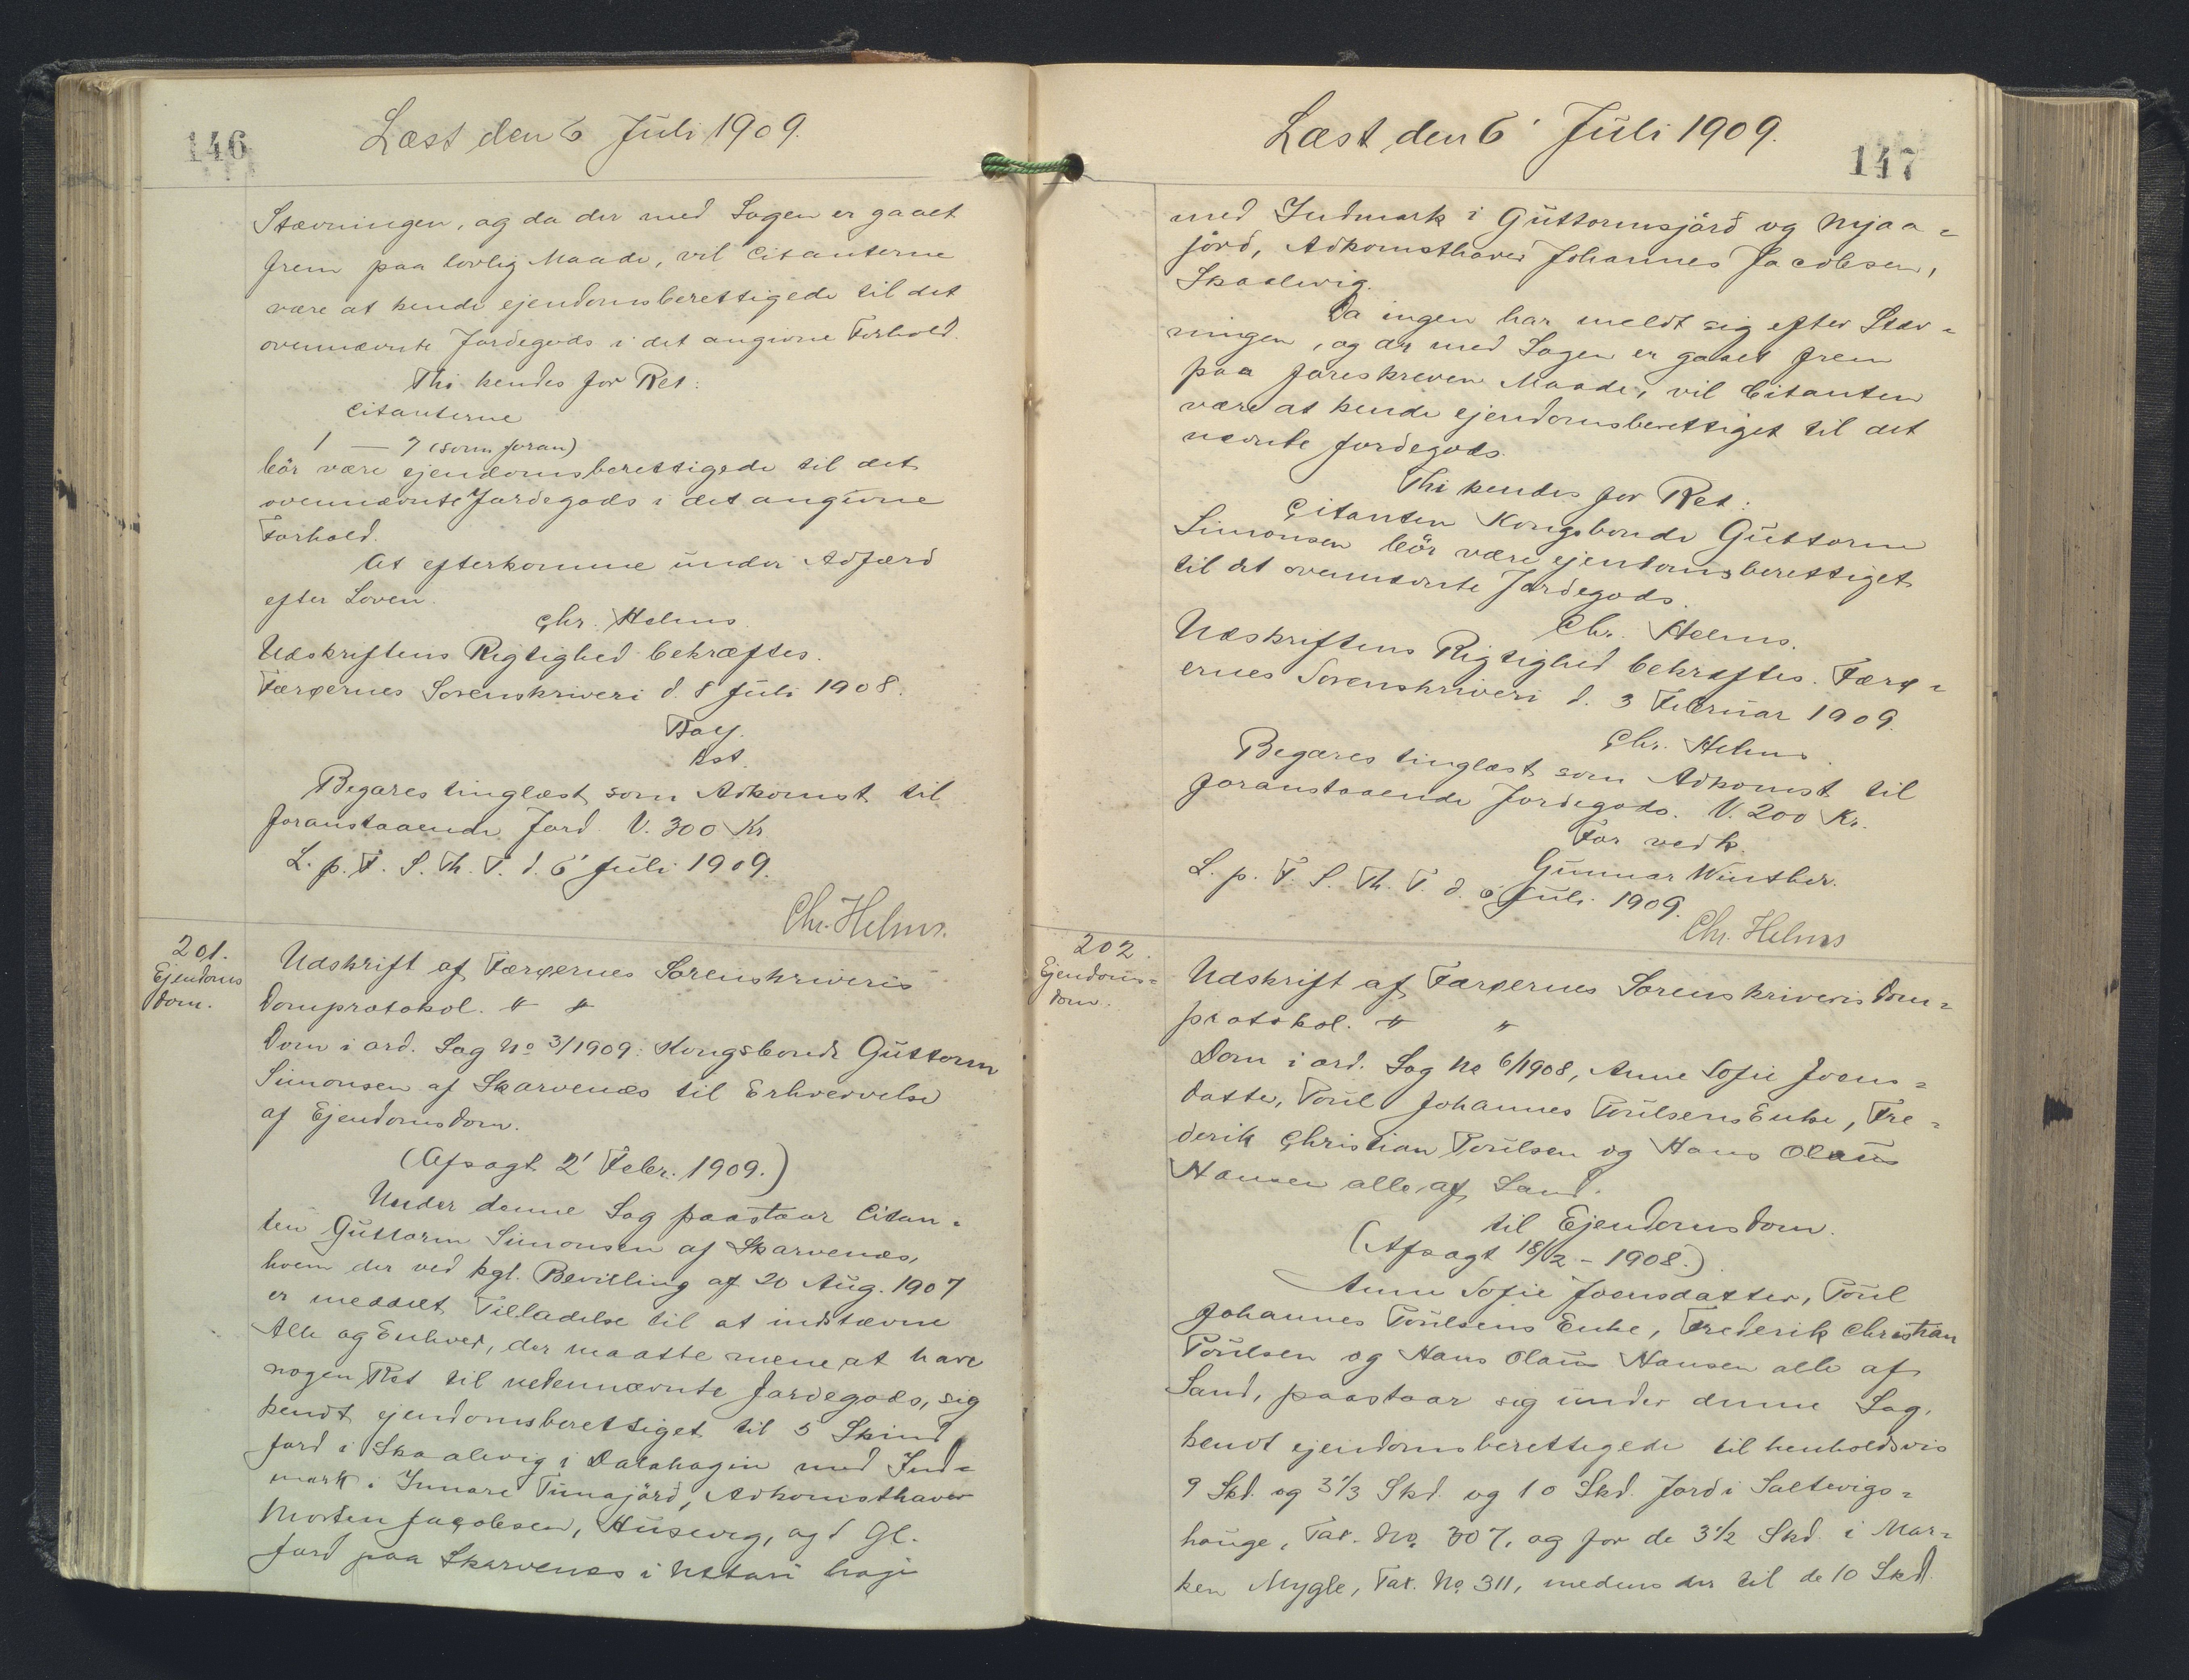 146
Læst den 6 Juli 1909.
Stævningen, og da der med Sagen er gaaet
frem paa lovlig Maade, vil Citanterne
være at kende ejendomsberettigede til det
ovennævnte Jordegods i det angivne Forhold.
Thi kendes for Ret:
Citanterne
1 — 7 (som foran)
bör være ejendomsberettigede til det
ovennævnte Jordegods i det angivne
Forhold.
At efterkomme under Adfærd
efter Loven.
Chr. Helms.
Udskriftens Rigtighed bekræftes.
Færøernes Sorenskriveri d. 8 Juli 1908.
Bay.
kst.
Begæres tinglæst som Adkomst til
foranstaaende Jord. V. 300 Kr.
L. p. F. S. Th. T. d. 6' Juli 1909.
Chr. Helms.
201.
Ejendoms
dom.
Udskrift af Færøernes Sorenskriveris
Domprotokol. " "
Dom i ord. Sag No 3/1909: Kongsbonde Guttorm
Simonsen af Skarvenæs til Erhvervelse
af Ejendomsdom.
(Afsagt 2' Febr. 1909.)
Under denne Sag paastaar Citan-
ten Guttorm Simonsen af Skarvenæs,
hvem der ved kgl. Bevilling af 20 Aug. 1907
er meddelt Tilladelse til at indstævne
Alle og Enhver, der maatte mene at have
nogen Ret til nedennævnte Jordegods, sig
kendt ejendomsberettiget til 5 Skind
Jord i Skaalevig i Dalahagin med Ind-
mark i Innare Tunajörd, Adkomsthaver
Morten Jacobsen, Husevig, og 1 Gl.
Jord paa Skarvenæs i Uttari hagi
147
Læst den 6' Juli 1909.
med Indmark i Guttormsjörd og Mjaa-
jörd, Adkomsthaver Johannes Jacobsen,
Skaalevig.
Da ingen har meldt sig efter Stæv-
ningen, og der med Sagen er gaaet frem
paa foreskreven Maade, vil Citanten
være at kende ejendomsberettiget til det
nævnte Jordegods.
Thi kendes for Ret:
Citanten Kongsbonde Guttorm
Simonsen bör være ejendomsberettiget
til det ovennævnte Jordegods.
Chr. Helms.
Udskriftens Rigtighed bekræftes. Færø-
ernes Sorenskriveri d. 3 Februar 1909.
Chr. Helms.
Begæres tinglæst som Adkomst til
foranstaaende Jordegods. V. 200 Kr.
For vedk.
Gunnar Winther.
L. p. F. S. Th. T. d. 6 Juli 1909.
Chr. Helms
202.
Ejendoms-
dom.
Udskrift af Færøernes Sorenskriveris Dom-
protokol. " "
Dom i ord. Sag No 6/1908, Anne Sofie Joens-
datter, Poul Johannes Poulsens Enke, Fre-
derik Christian Poulsen og Hans Olaus
Hansen alle af Sand.
til Ejendomsdom.
(Afsagt 18/2 - 1908.)
Anne Sofie Joensdatter, Poul
Johannes Poulsens Enke, Frederik Christian
Poulsen og Hans Olaus Hansen alle af
Sand, paastaar sig under denne Sag,
kendt ejendomsberettigede til henholdsvis
9 Skd. og 3 1/3 Skd. og 10 Skd. Jord i Saltvigs-
houge, Tax. No. 307, og for de 3 1/2 Skd. i Mar-
ken Mygle, Tax. No. 311, medens der til de 10 Skd.